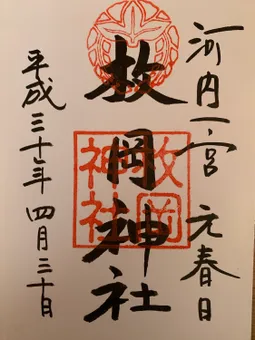 河内一宮 元春日
枚岡神社
平成三十年四月三十日
枚岡
神社